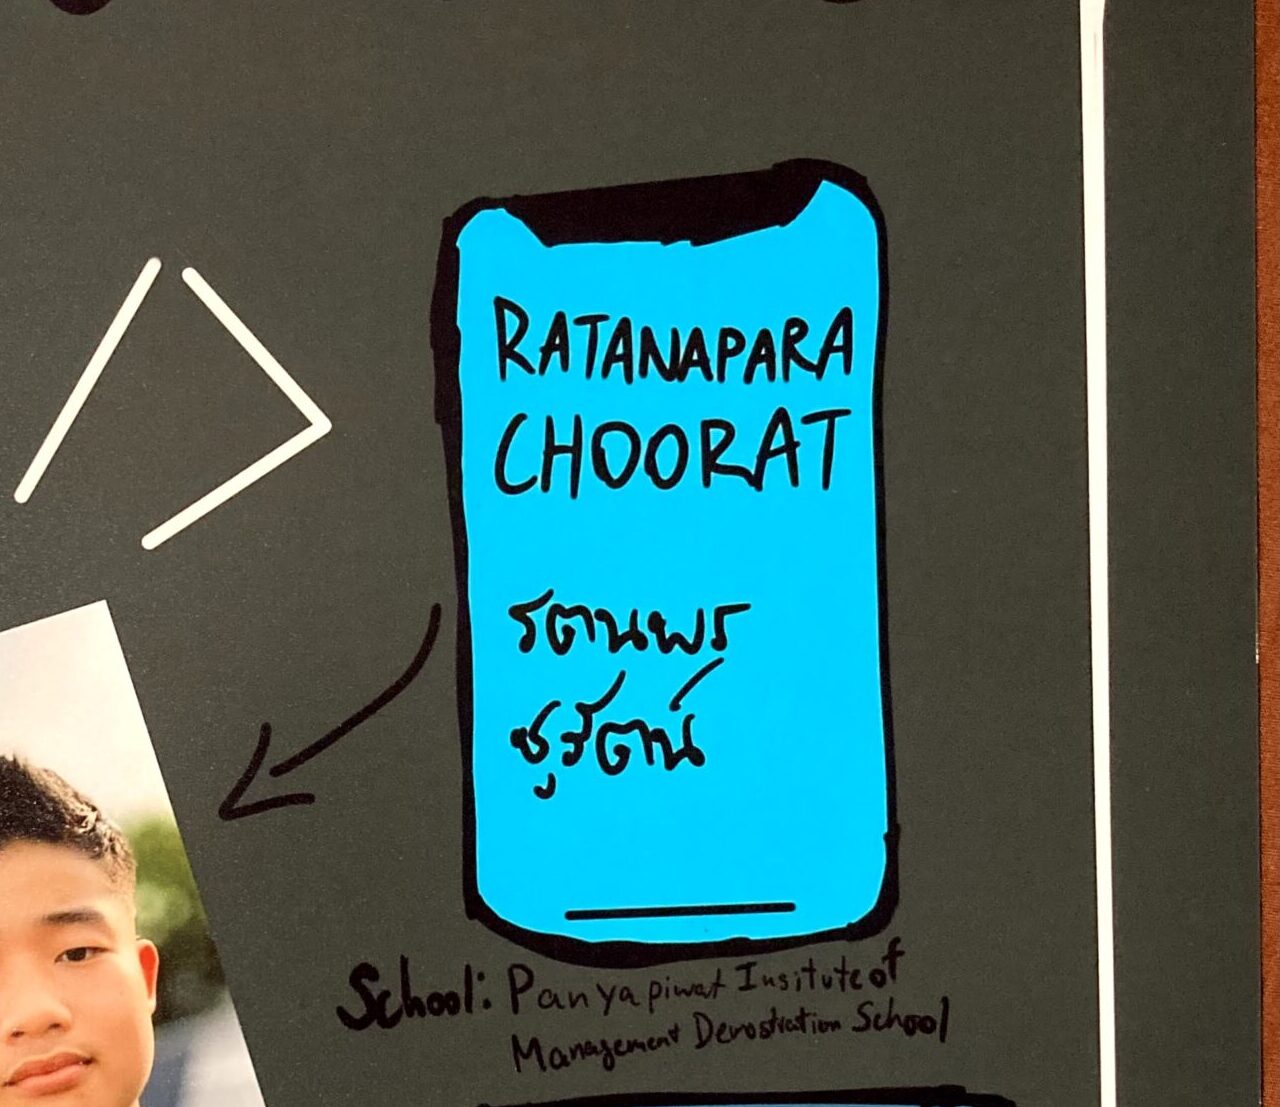 RATANAPARA
CHOORAT
รตนพร
ชูรัตน์
School: Panyapiwat Insitute of
Management Demostration School